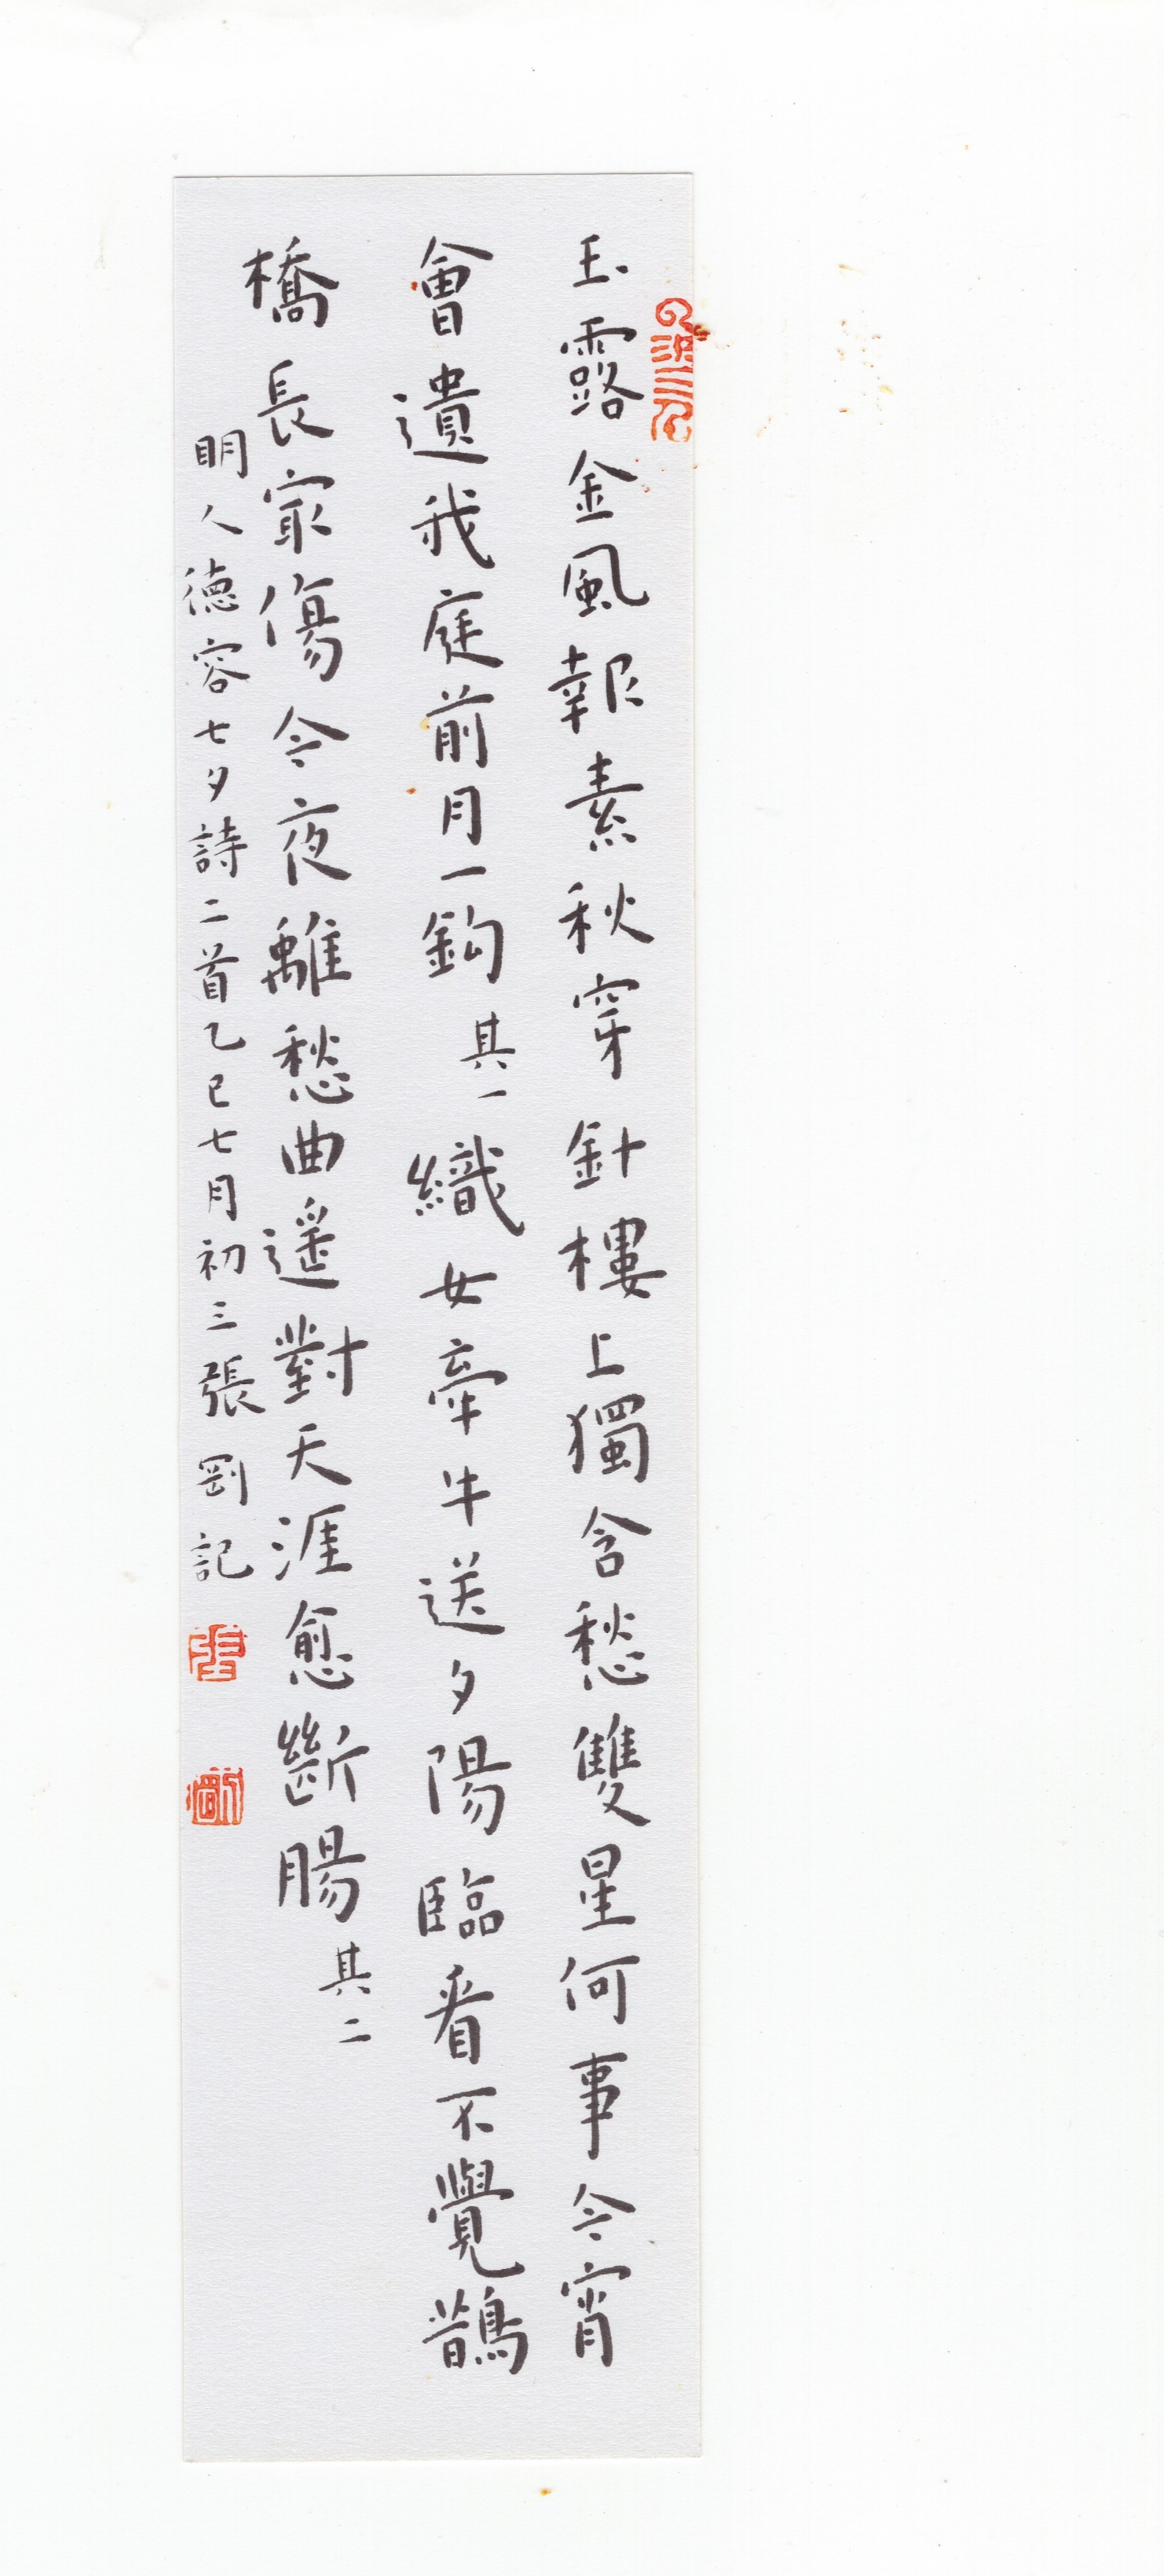 玉露金風報素秋穿針樓上獨含愁雙星何事今宵
會遺我庭前月一鈎其一織女牽牛送夕陽臨看不覺鵲
橋長寂傷今夜離愁曲遥對天涯愈斷腸其二
明人德容七夕詩二首乙巳七月初三張剛記